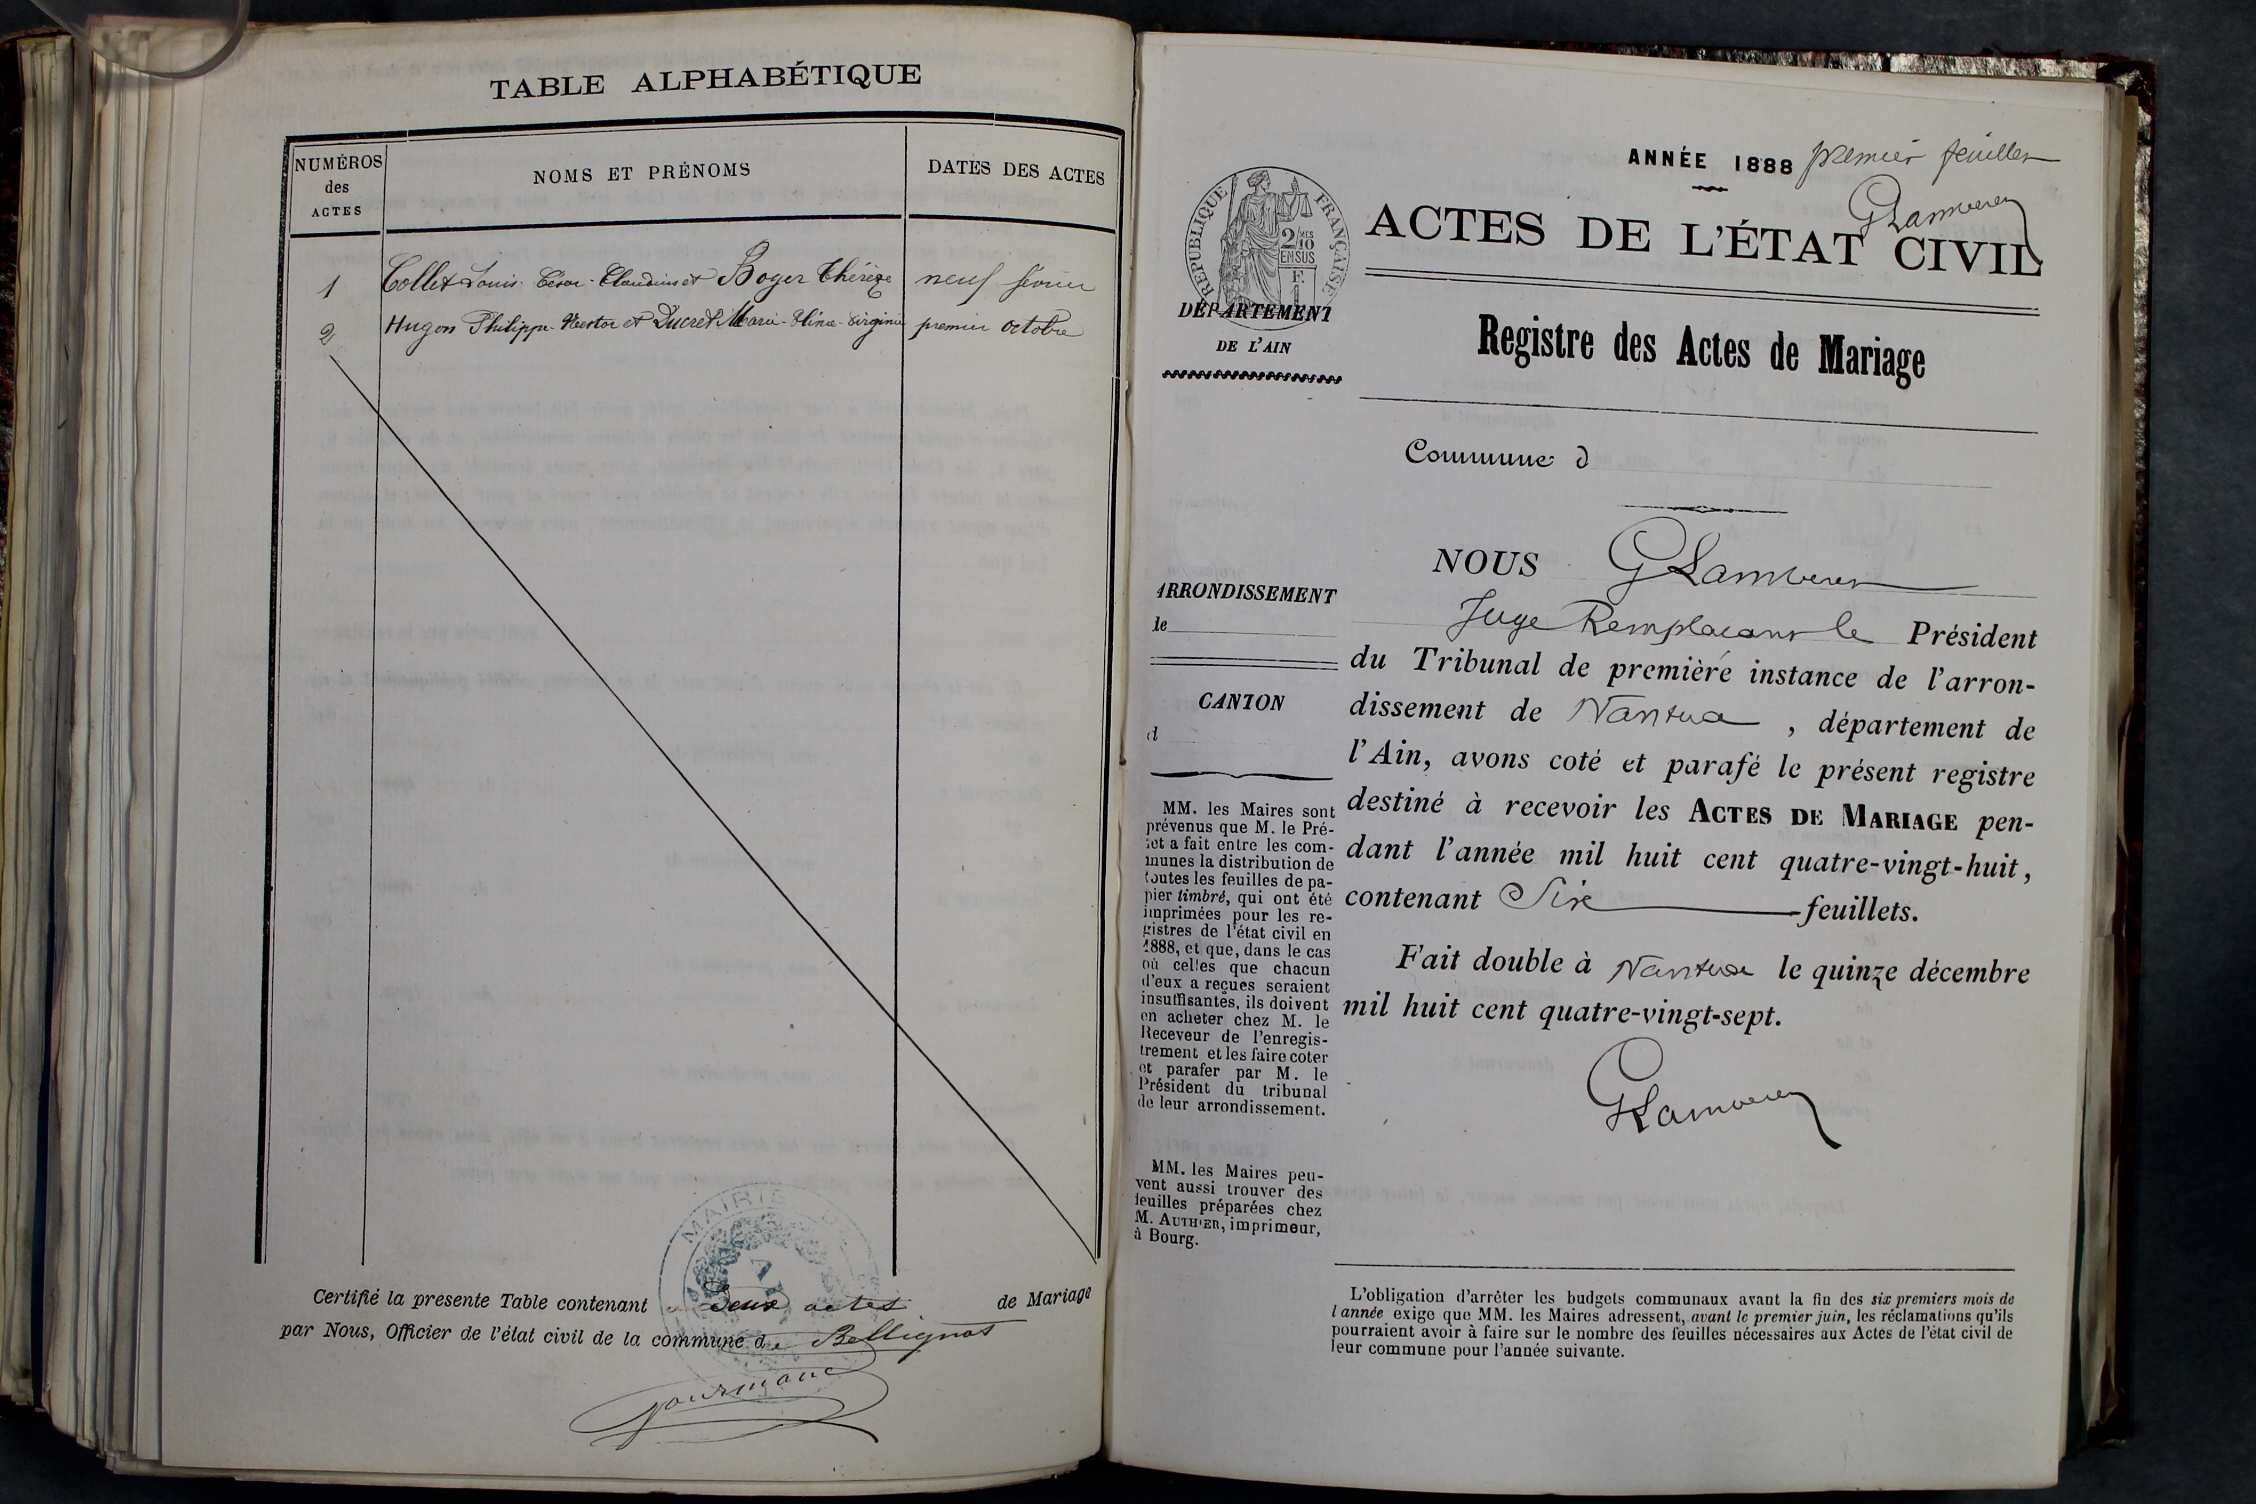 TABLE ALPHABÉTIQUE
NUMÉROS
des
ACTES
NOMS ET PRÉNOMS
DATES DES ACTES
1 Collet Louis César-Claudius et Boyer Thérèze neuf février
2 Hugon Philippe-Nestor et Ducret Marie-Virginie premier octobre
MAIRIE
Certifié la presente Table contenant deux actes de Mariage
par Nous, Officier de l'état civil de la commune de Bellignat
Gourmand
ANNÉE 1888 premier feuillet
RÉPUBLIQUE FRANÇAISE
2/10 MES
EN SUS
F.
1
ACTES DE L'ÉTAT CIVIL
DÉPARTEMENT
DE L'AIN
Registre des Actes de Mariage
Commune d
NOUS
ARRONDISSEMENT
le
CANTON
d
Juge Remplacant le Président
du Tribunal de première instance de l'arron-
dissement de Nantua, département de
l'Ain, avons coté et parafé le présent registre
destiné à recevoir les ACTES DE MARIAGE pen-
dant l'année mil huit cent quatre-vingt-huit,
contenant Six feuillets.
Fait double à Nantua le quinze décembre
mil huit cent quatre-vingt-sept.
MM. les Maires sont
prévenus que M. le Pré-
fet a fait entre les com-
munes la distribution de
toutes les feuilles de pa-
pier timbré, qui ont été
imprimées pour les re-
gistres de l'état civil en
1888, et que, dans le cas
où celles que chacun
d'eux a reçues seraient
insuffisantes, ils doivent
en acheter chez M. le
Receveur de l'enregis-
trement et les faire coter
et parafer par M. le
Président du tribunal
de leur arrondissement.
MM. les Maires peu-
vent aussi trouver des
feuilles préparées chez
M. AUTHIER, imprimeur,
à Bourg.
L'obligation d'arrêter les budgets communaux avant la fin des six premiers mois de
l'année exige que MM. les Maires adressent, avant le premier juin, les réclamations qu'ils
pourraient avoir à faire sur le nombre des feuilles nécessaires aux Actes de l'état civil de
leur commune pour l'année suivante.